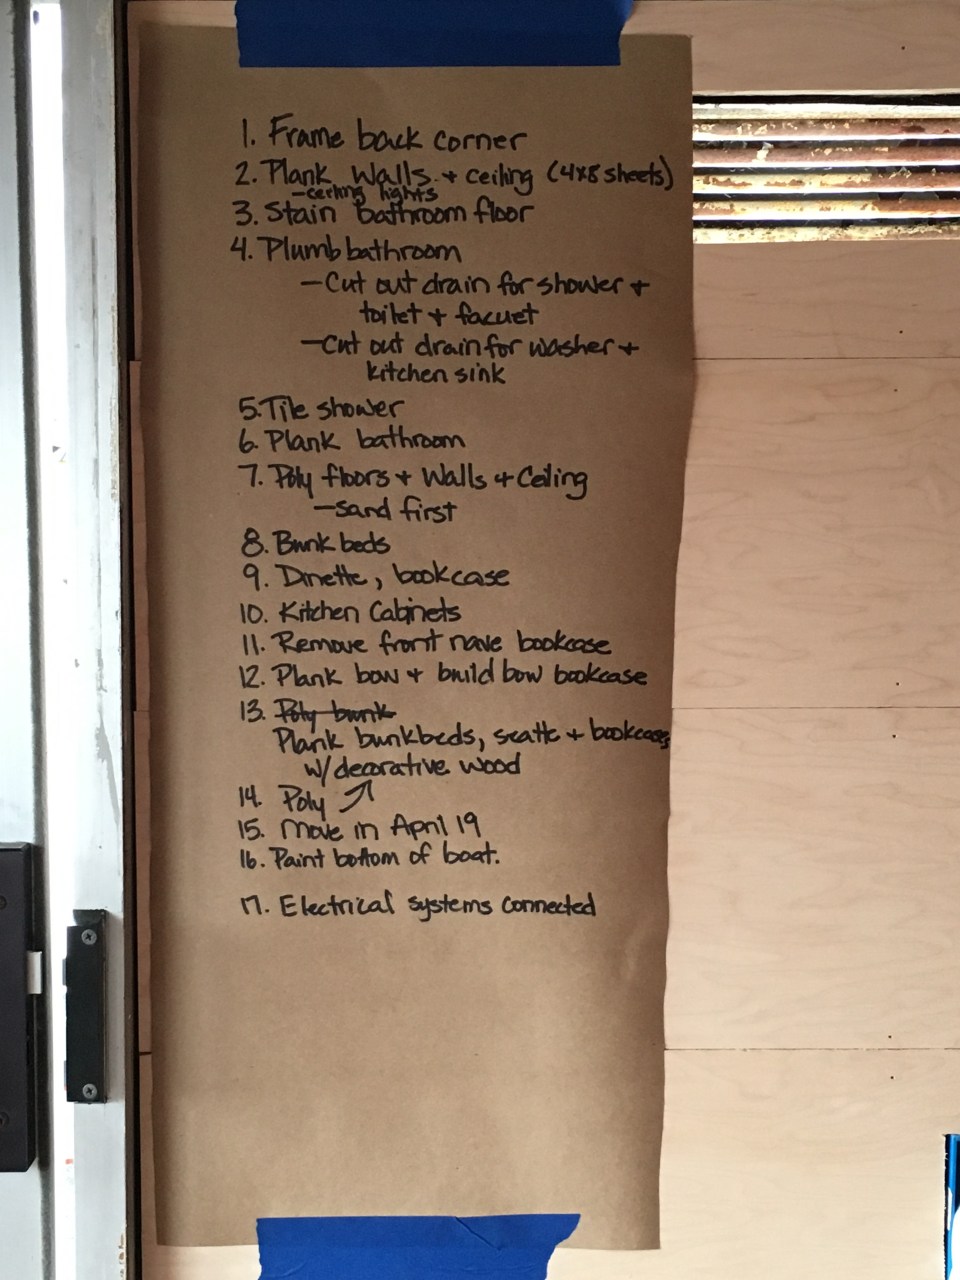 1. Frame back corner
2. Plank Walls + ceiling (4x8 sheets)
-ceiling lights
3. Stain bathroom floor
4. Plumb bathroom
-Cut out drain for shower +
toilet + facuet
-Cut out drain for washer +
kitchen sink
5. Tile shower
6. Plank bathroom
7. Poly floors + Walls + Ceiling
-sand first
8. Bunk beds
9. Dinette, bookcase
10. Kitchen Cabinets
11. Remove front nave bookcase
12. Plank bow + build bow bookcase
13. Poly bunk
Plank bunkbeds, seatte + bookcases
w/decorative wood
14. Poly
15. Move in April 19
16. Paint bottom of boat.
17. Electrical systems connected